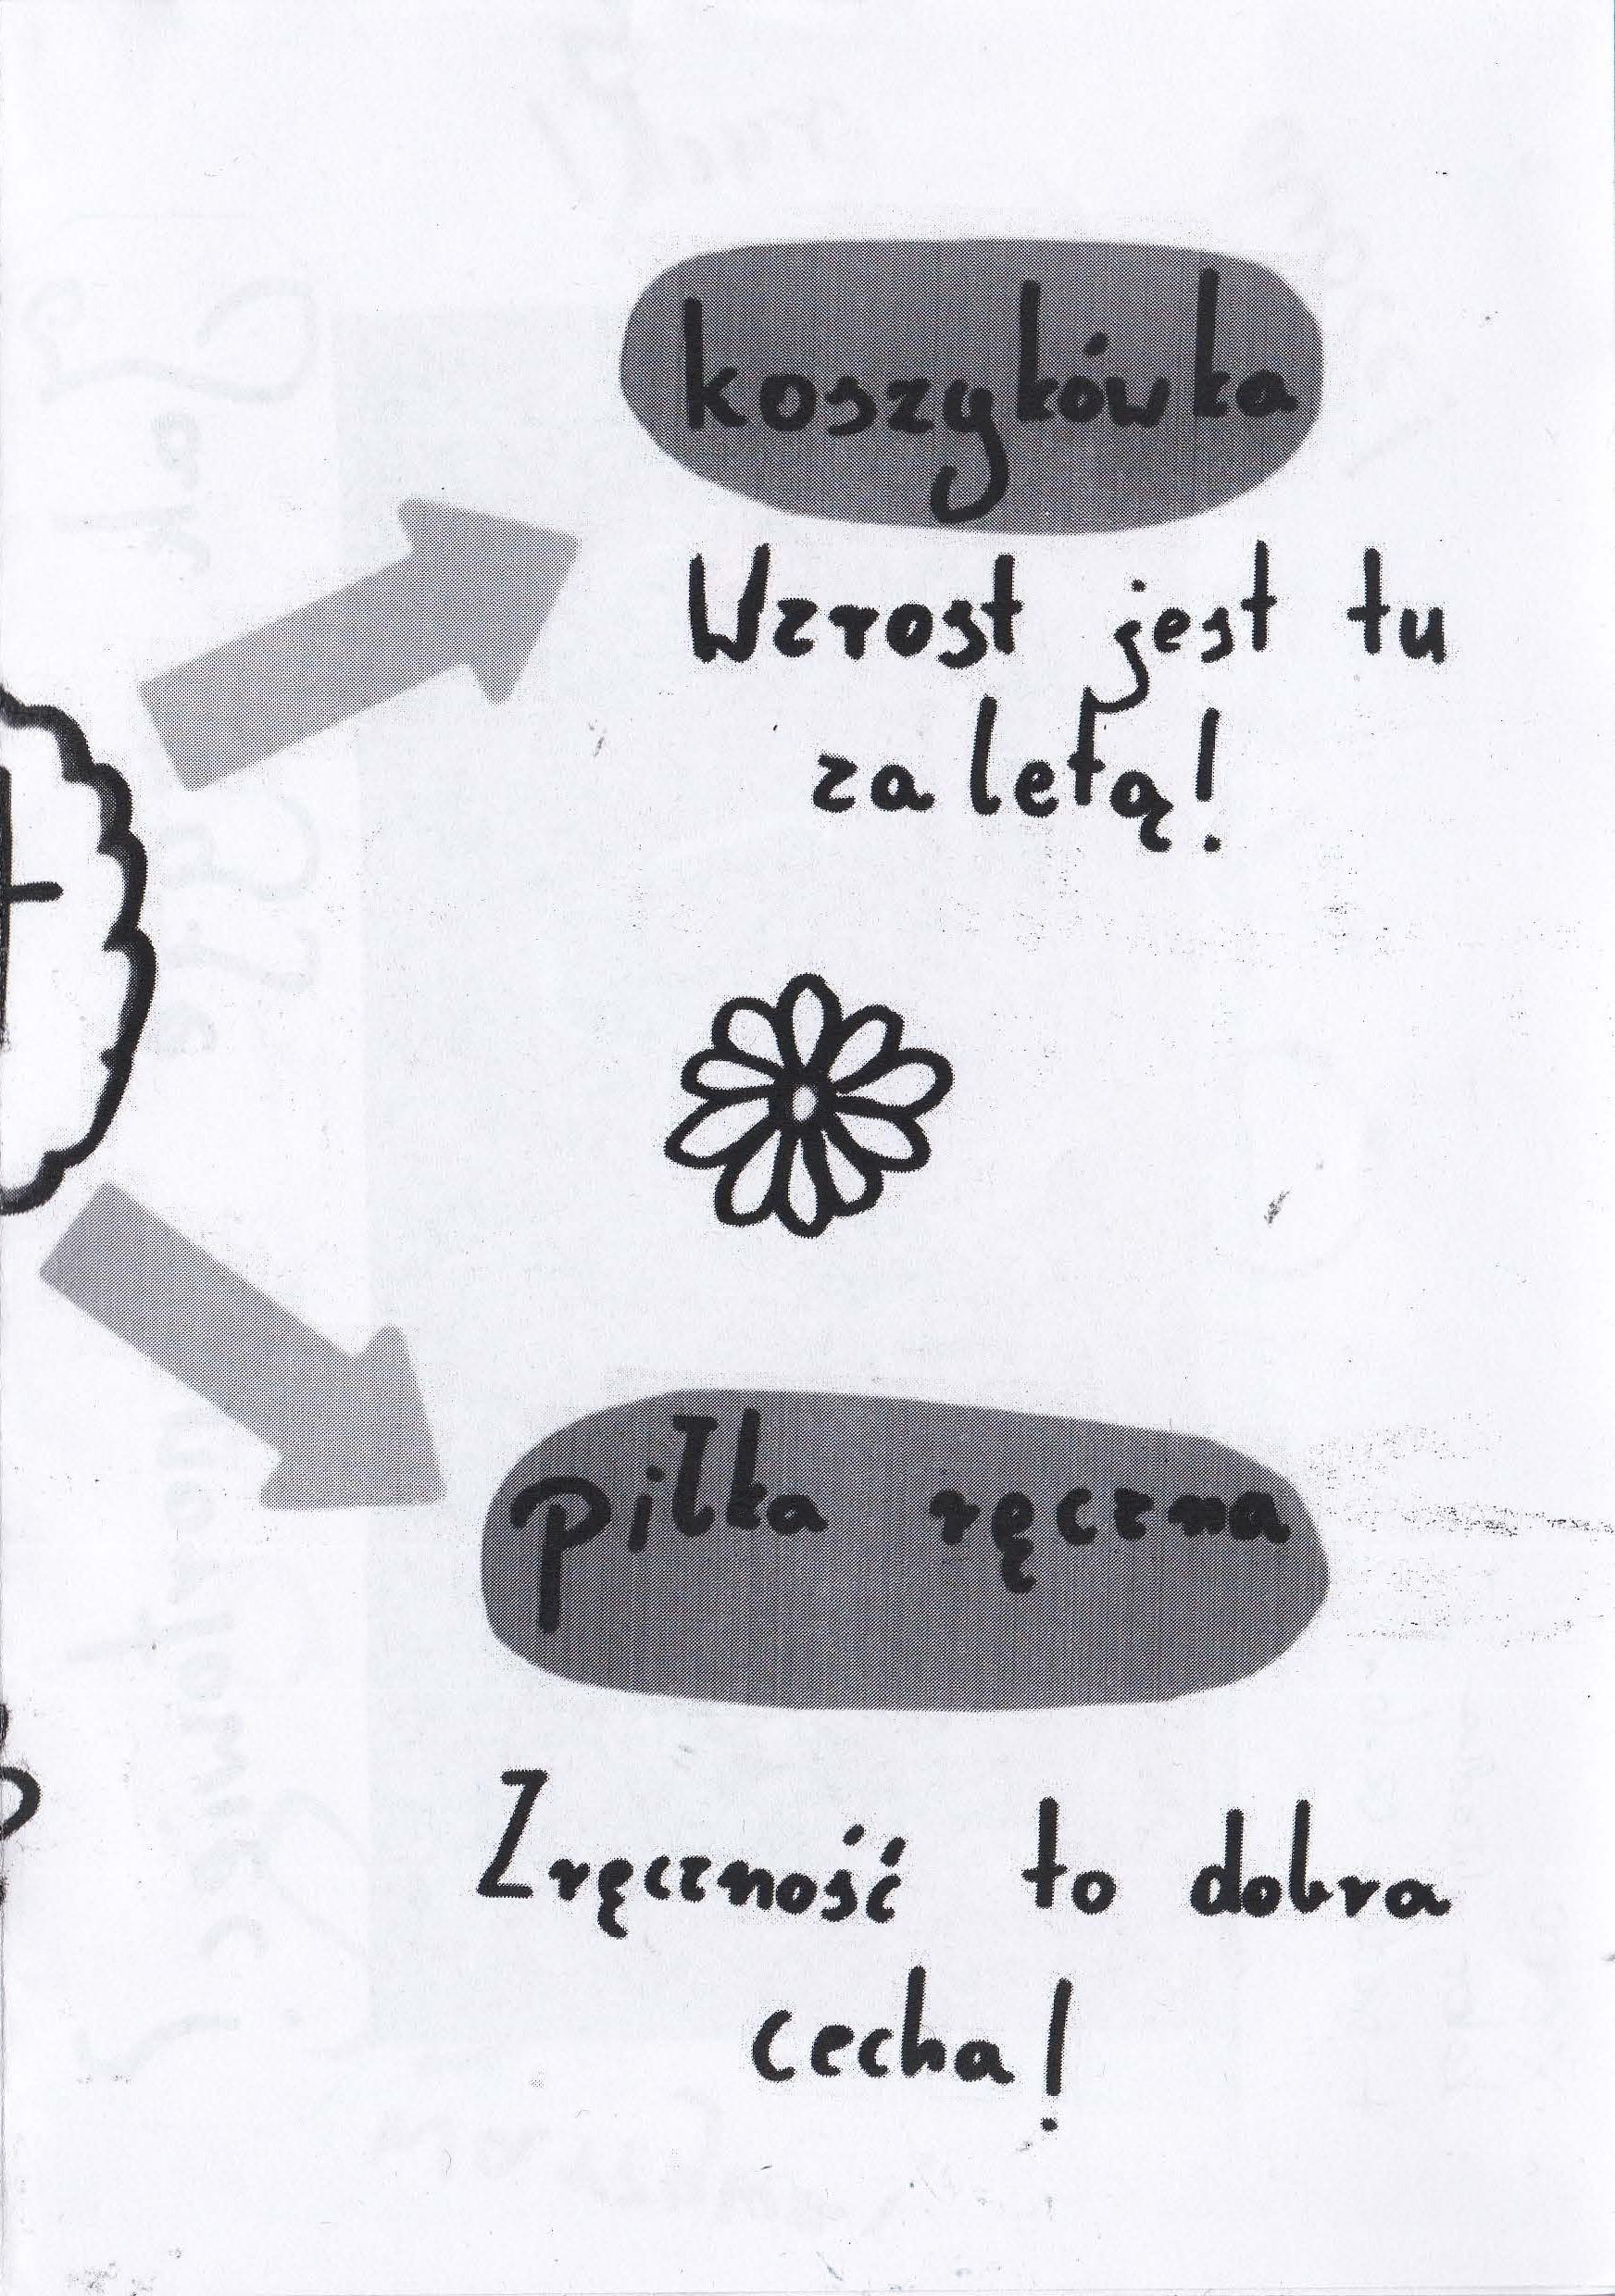 koszykówka
Wzrost jest tu
zaletą!
piłka ręczna
Zręczność to dobra
cecha!